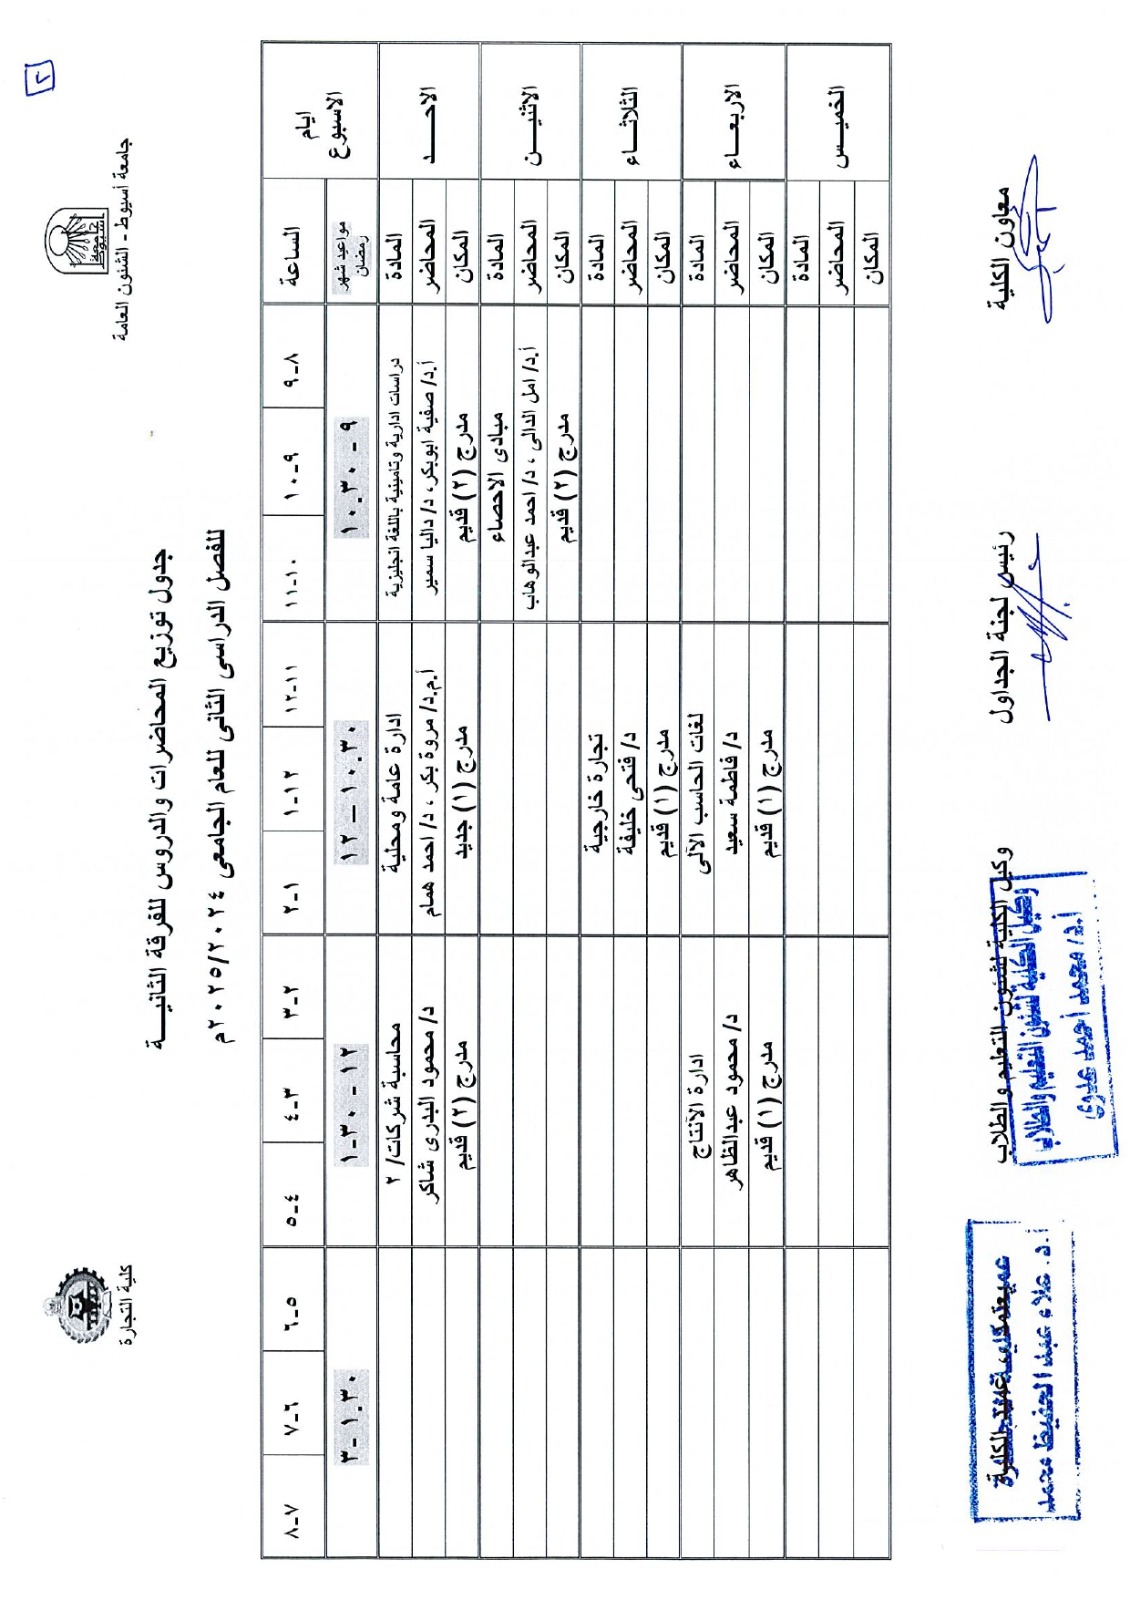 ٢
جامعة أسيوط - الشئون العامة
كلية التجارة
جدول توزيع المحاضرات والدروس للفرقة الثانيـــة
للفصل الدراسى الثانى للعام الجامعى ٢٠٢٥/٢٠٢٤م
ايام الاسبوع
الساعة
٩-٨
١٠-٩
١١-١٠
١٢-١١
١-١٢
٢-١
٣-٢
٤-٣
٥-٤
٦-٥
٧-٦
٨-٧
مواعيد شهر رمضان
١٠.٣٠ - ٩
١٢ - ١٠.٣٠
١-٣٠ - ١٢
٣ - ١.٣٠
الاحـــد
المادة
دراسات ادارية وتامينية باللغة انجليزية
ادارة عامة ومحلية
محاسبة شركات/ ٢
المحاضر
أ.د/ صفية ابوبكر، د/ داليا سمير
أ.م.د/ مروة بكر ، د/ احمد همام
د/ محمود البدرى شاكر
المكان
مدرج (٢) قديم
مدرج (١) جديد
مدرج (٢) قديم
الاثنيـــن
المادة
مبادى الاحصاء
المحاضر
أ.د/ امل الدالى ، د/ احمد عبدالوهاب
المكان
مدرج (٢) قديم
الثلاثـــاء
المادة
تجارة خارجية
المحاضر
د/ فتحى خليفة
المكان
مدرج (١) قديم
الاربعـــاء
المادة
لغات الحاسب الآلى
ادارة الانتاج
المحاضر
د/ فاطمة سعيد
د/ محمود عبدالظاهر
المكان
مدرج (١) قديم
مدرج (١) قديم
الخميـس
المادة
المحاضر
المكان
معاون الكلية
رئيس لجنة الجداول
وكيل الكلية لشئون التعليم والطلاب
وكيل الكلية لشئون التعليم والطلاب
أ.د/ محمد أحمد عدوى
عميد الكلية
أ.د. علاء عبد الحفيظ محمد